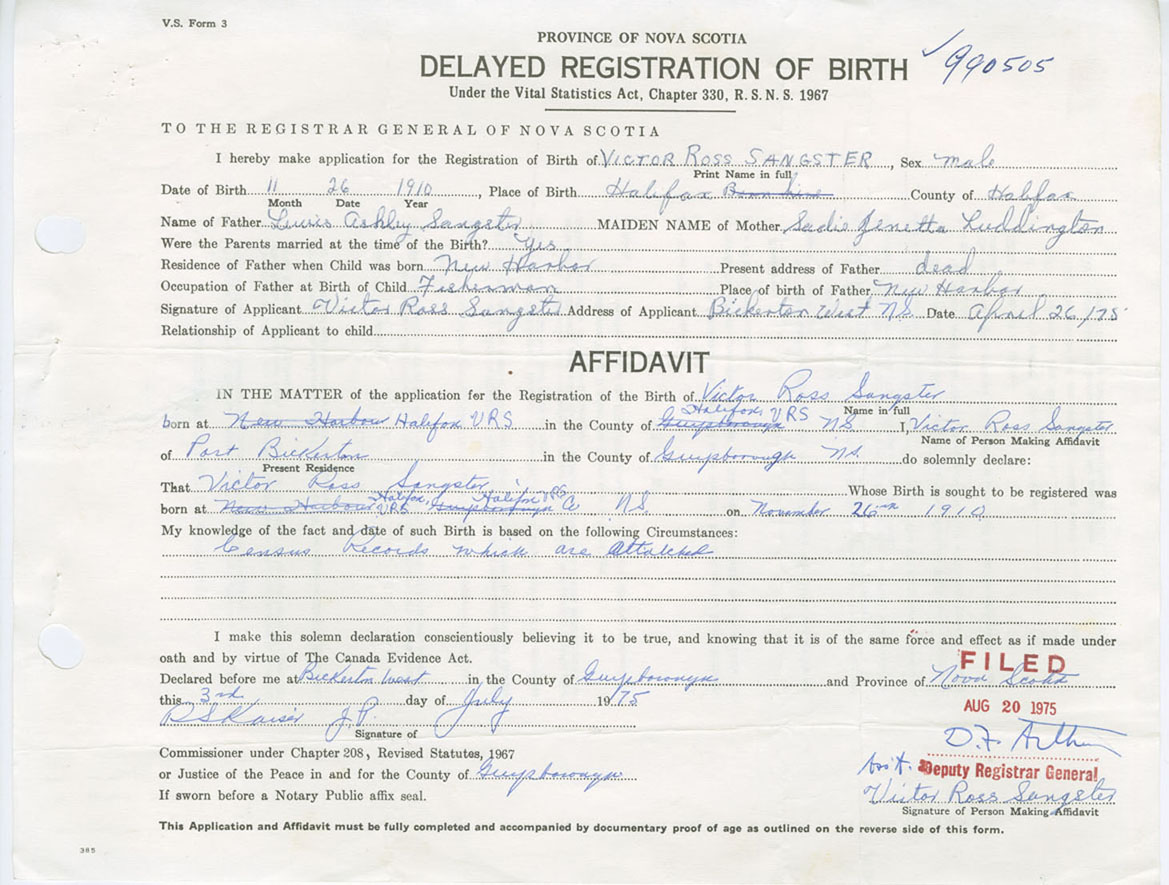 V.S. Form 3
PROVINCE OF NOVA SCOTIA
DELAYED REGISTRATION OF BIRTH
✓ 990505
Under the Vital Statistics Act, Chapter 330, R.S.N.S. 1967
TO THE REGISTRAR GENERAL OF NOVA SCOTIA
I hereby make application for the Registration of Birth of VICTOR ROSS SANGSTER, Sex male
Print Name in full
Date of Birth 11 26 1910, Place of Birth Halifax County of Halifax
Month Date Year
Name of Father Lewis Ashley Sangster MAIDEN NAME of Mother Sadie Genetta Luddington
Were the Parents married at the time of the Birth? Yes
Residence of Father when Child was born New Harbor Present address of Father dead
Occupation of Father at Birth of Child Fisherman Place of birth of Father New Harbor
Signature of Applicant Victor Ross Sangster Address of Applicant Bickerton West NS Date April 26/75
Relationship of Applicant to child
AFFIDAVIT
IN THE MATTER of the application for the Registration of the Birth of Victor Ross Sangster
Name in full
born at New Harbour Halifax VRS in the County of Guysborough Halifax, VRS NS I, Victor Ross Sangster
Name of Person Making Affidavit
of Port Bickerton in the County of Guysborough NS. do solemnly declare:
Present Residence
That Victor Ross Sangster Whose Birth is sought to be registered was
born at New Harbour Halifax, VRS Guysborough Halifax VRS Co NS. on November 26th 1910
My knowledge of the fact and date of such Birth is based on the following Circumstances:
Census Records which are attatched
I make this solemn declaration conscientiously believing it to be true, and knowing that it is of the same force and effect as if made under
oath and by virtue of The Canada Evidence Act.
FILED
Declared before me at Bickerton West in the County of Guysborough and Province of Nova Scotia
this 3rd day of July 1975
AUG 20 1975
R S Kaiser J.P.
Signature of
D.F. Arthur
Commissioner under Chapter 208, Revised Statutes, 1967
Deputy Registrar General
or Justice of the Peace in and for the County of Guysborough
Victor Ross Sangster
If sworn before a Notary Public affix seal.
Signature of Person Making Affidavit
This Application and Affidavit must be fully completed and accompanied by documentary proof of age as outlined on the reverse side of this form.
385